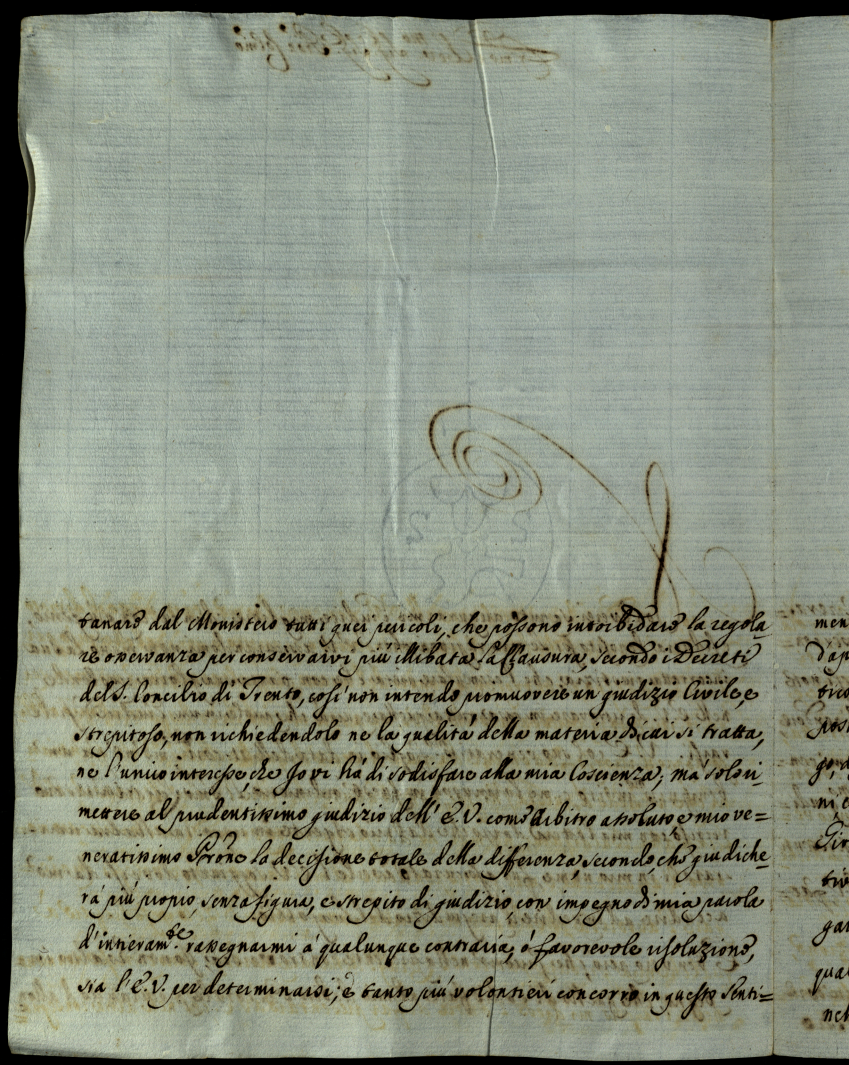 tanare dal Monistero tutti quei pericoli, che possono intorbidare la regola-
re osservanza per conservarvi più illibata la Clausura, secondo i Decreti
del S. Concilio di Trento, così non intendo promuovere un giudizio Civile, e
strepitoso, non richiedendolo ne la qualità della materia di cui si tratta,
ne l'unico interesse, che Io vi hà di sodisfare alla mia Coscienza; mà solo ri-
mettere al prudentissimo giudizio dell' E. V. come Arbitro assoluto, e mio ve=
neratissimo Prone la decisione totale della differenza, secondo, che giudiche-
rà più propio, senza figura, e strepito di giudizio, con impegno di mia parola
d'intieramte. rassegnarmi à qualunque contraria, ò favorevole risoluzione,
sia l'E. V. per determinarsi; e tanto più volontieri concorro in questo senti=
men
d'ap
tico
post
go, d
ni e
Giro
tiv
gar
qual
nel